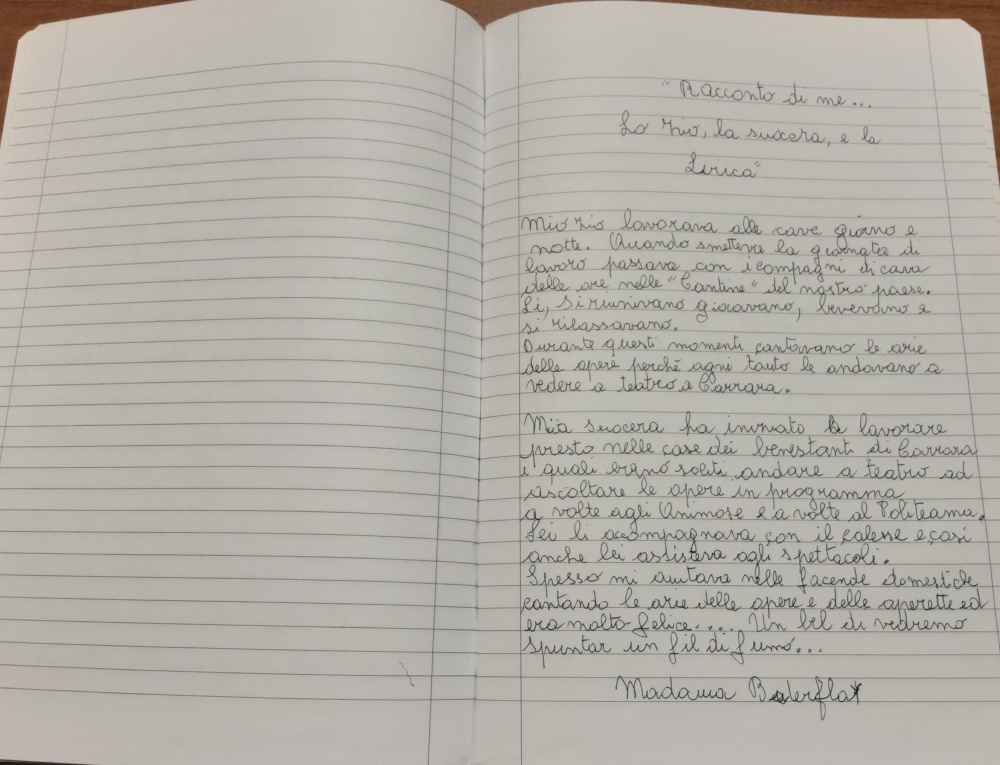 "Racconto di me...
Lo zio, la suocera, e la
Lirica"
Mio zio lavorava alle cave giorno e
notte. Quando smetteva la giornata di
lavoro passava con i compagni di cava
delle ore nelle "Cantine" del nostro paese.
Lì, si riunivano giocavano, bevevano e
si rilassavano.
Durante questi momenti cantavano le arie
delle opere perché ogni tanto le andavano a
vedere a teatro a Carrara.
Mia suocera ha iniziato a lavorare
presto nelle case dei benestanti di Carrara
i quali erano soliti andare a teatro ad
ascoltare le opere in programma
a volte agli Animosi e a volte al Politeama.
Lei li accompagnava con il calesse e così
anche lei assisteva agli spettacoli.
Spesso mi aiutava nelle facende domestiche
cantando le arie delle opere e delle operette ed
era molto felice.... Un bel dì vedremo
spuntar un fil di fumo...
Madama